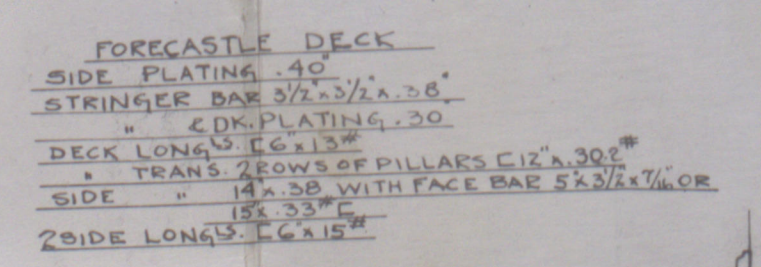 FORECASTLE DECK
SIDE PLATING .40"
STRINGER BAR 3½"x3½"x.38"
" & DK. PLATING .30"
DECK LONGLS. [6"x13#
" TRANS. 2 ROWS OF PILLARS [12"x.30.2#
SIDE " 14"x.38 WITH FACE BAR 5"x3½"x7/16" OR
15"x.33#[
2 SIDE LONGLS. [6"x15#